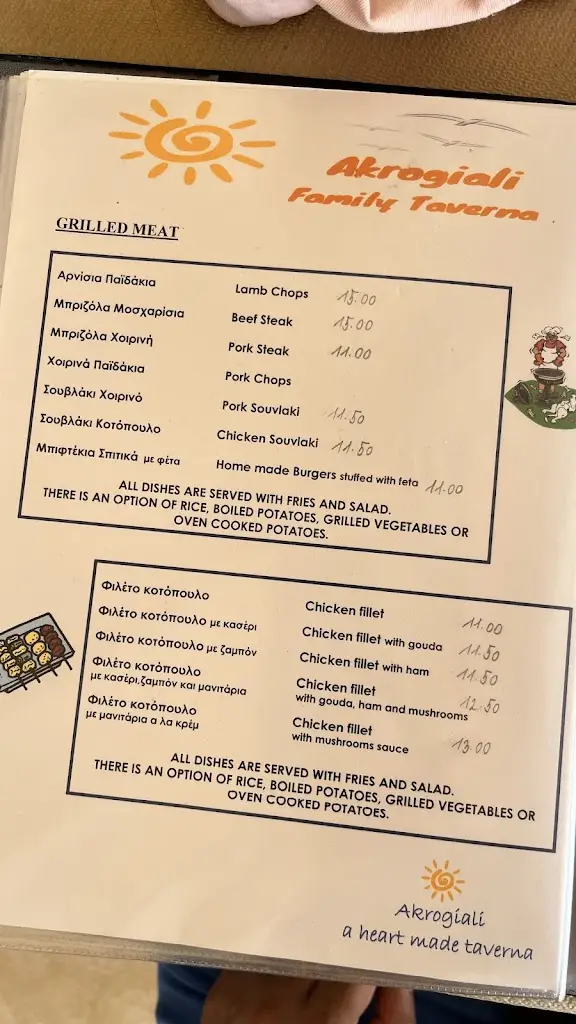 Akrogiali
Family Taverna
GRILLED MEAT
Αρνίσια Παϊδάκια Lamb Chops 15.00
Μπριζόλα Μοσχαρίσια Beef Steak 15.00
Μπριζόλα Χοιρινή Pork Steak 11.00
Χοιρινά Παϊδάκια Pork Chops
Σουβλάκι Χοιρινό Pork Souvlaki 11.50
Σουβλάκι Κοτόπουλο Chicken Souvlaki 11.50
Μπιφτέκια Σπιτικά με φέτα Home made Burgers stuffed with feta 11.00
ALL DISHES ARE SERVED WITH FRIES AND SALAD.
THERE IS AN OPTION OF RICE, BOILED POTATOES, GRILLED VEGETABLES OR
OVEN COOKED POTATOES.
Φιλέτο κοτόπουλο Chicken fillet 11.00
Φιλέτο κοτόπουλο με κασέρι Chicken fillet with gouda 11.50
Φιλέτο κοτόπουλο με ζαμπόν Chicken fillet with ham 11.50
Φιλέτο κοτόπουλο Chicken fillet
με κασέρι,ζαμπόν και μανιτάρια with gouda, ham and mushrooms 12.50
Φιλέτο κοτόπουλο Chicken fillet
με μανιτάρια α λα κρέμ with mushrooms sauce 13.00
ALL DISHES ARE SERVED WITH FRIES AND SALAD.
THERE IS AN OPTION OF RICE, BOILED POTATOES, GRILLED VEGETABLES OR
OVEN COOKED POTATOES.
Akrogiali
a heart made taverna